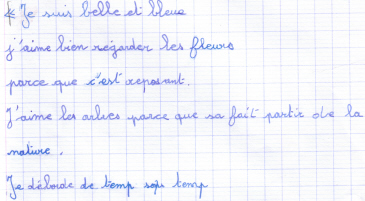 Je suis belle et bleue
j'aime bien regarder les fleurs
parce que c'est reposant.
J'aime les arbres parce que sa fait partir de la
nature.
Je déborde de temp temp